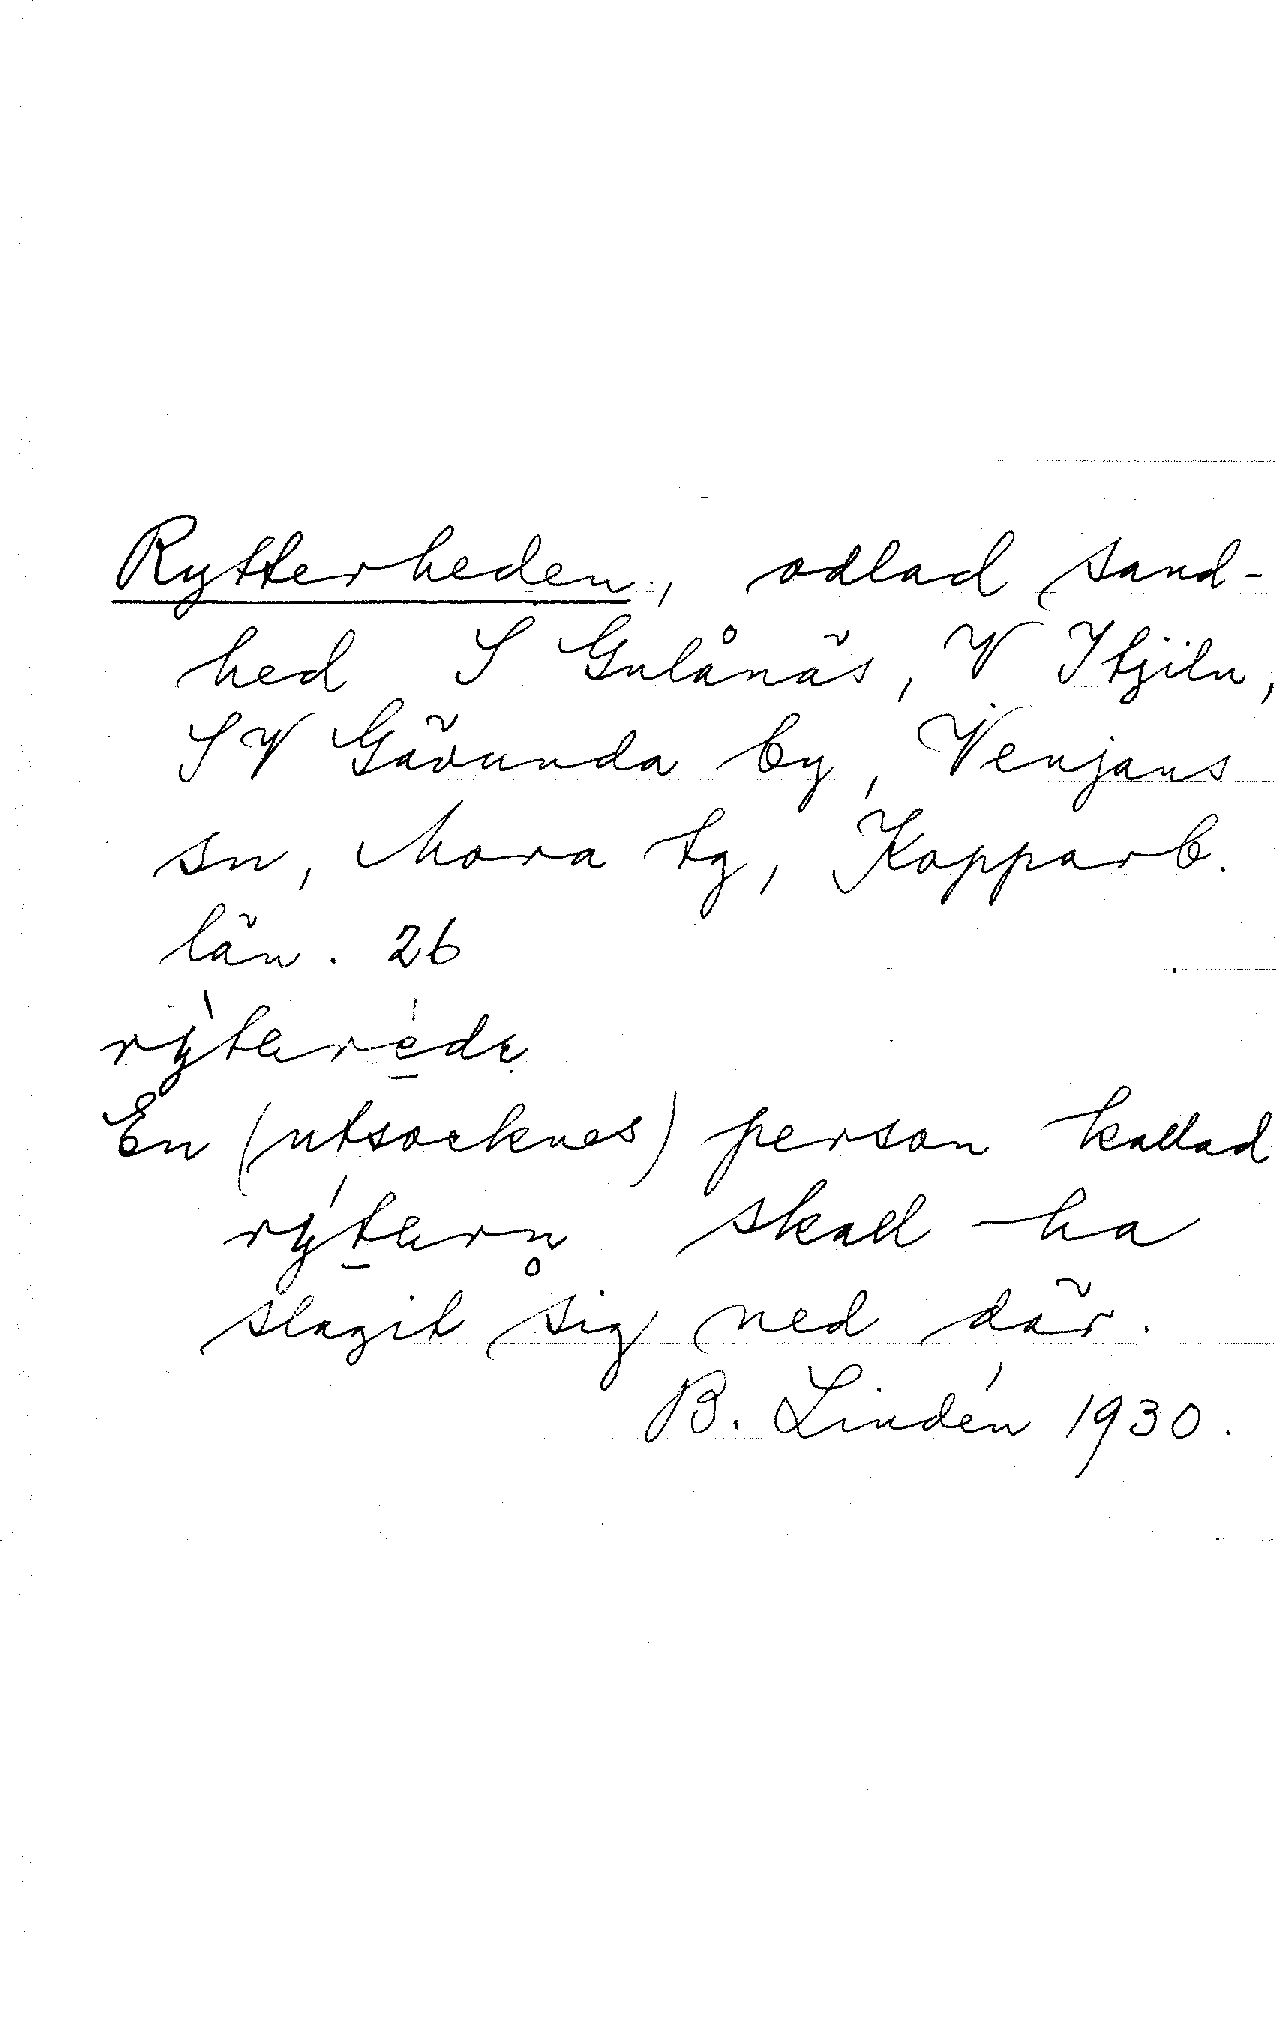 Rytterheden, odlad sand-
hed S Gulånäs, V Itjiln,
SV Gävunda by, Venjans
sn, Mora tg, Kopparb.
län. 26
En (utsocknes) person kallad
skall ha
slagit sig ned där.
B. Lindén 1930.